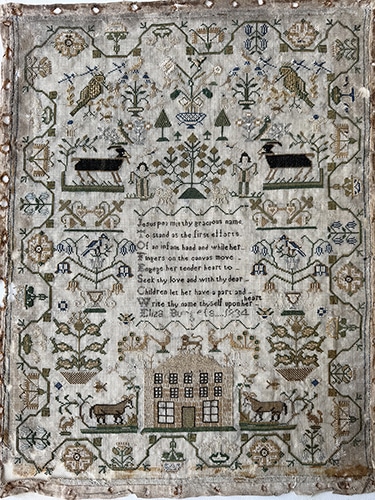 Jesus permit thy gracious name
To stand as the first efforts
Of an infant hand and while her
Fingers on the canvas move
Engage her tender heart to
Seek thy love and with thy dear
Children let her have a part and
Write thy name thyself upon her heart
Eliza 1834